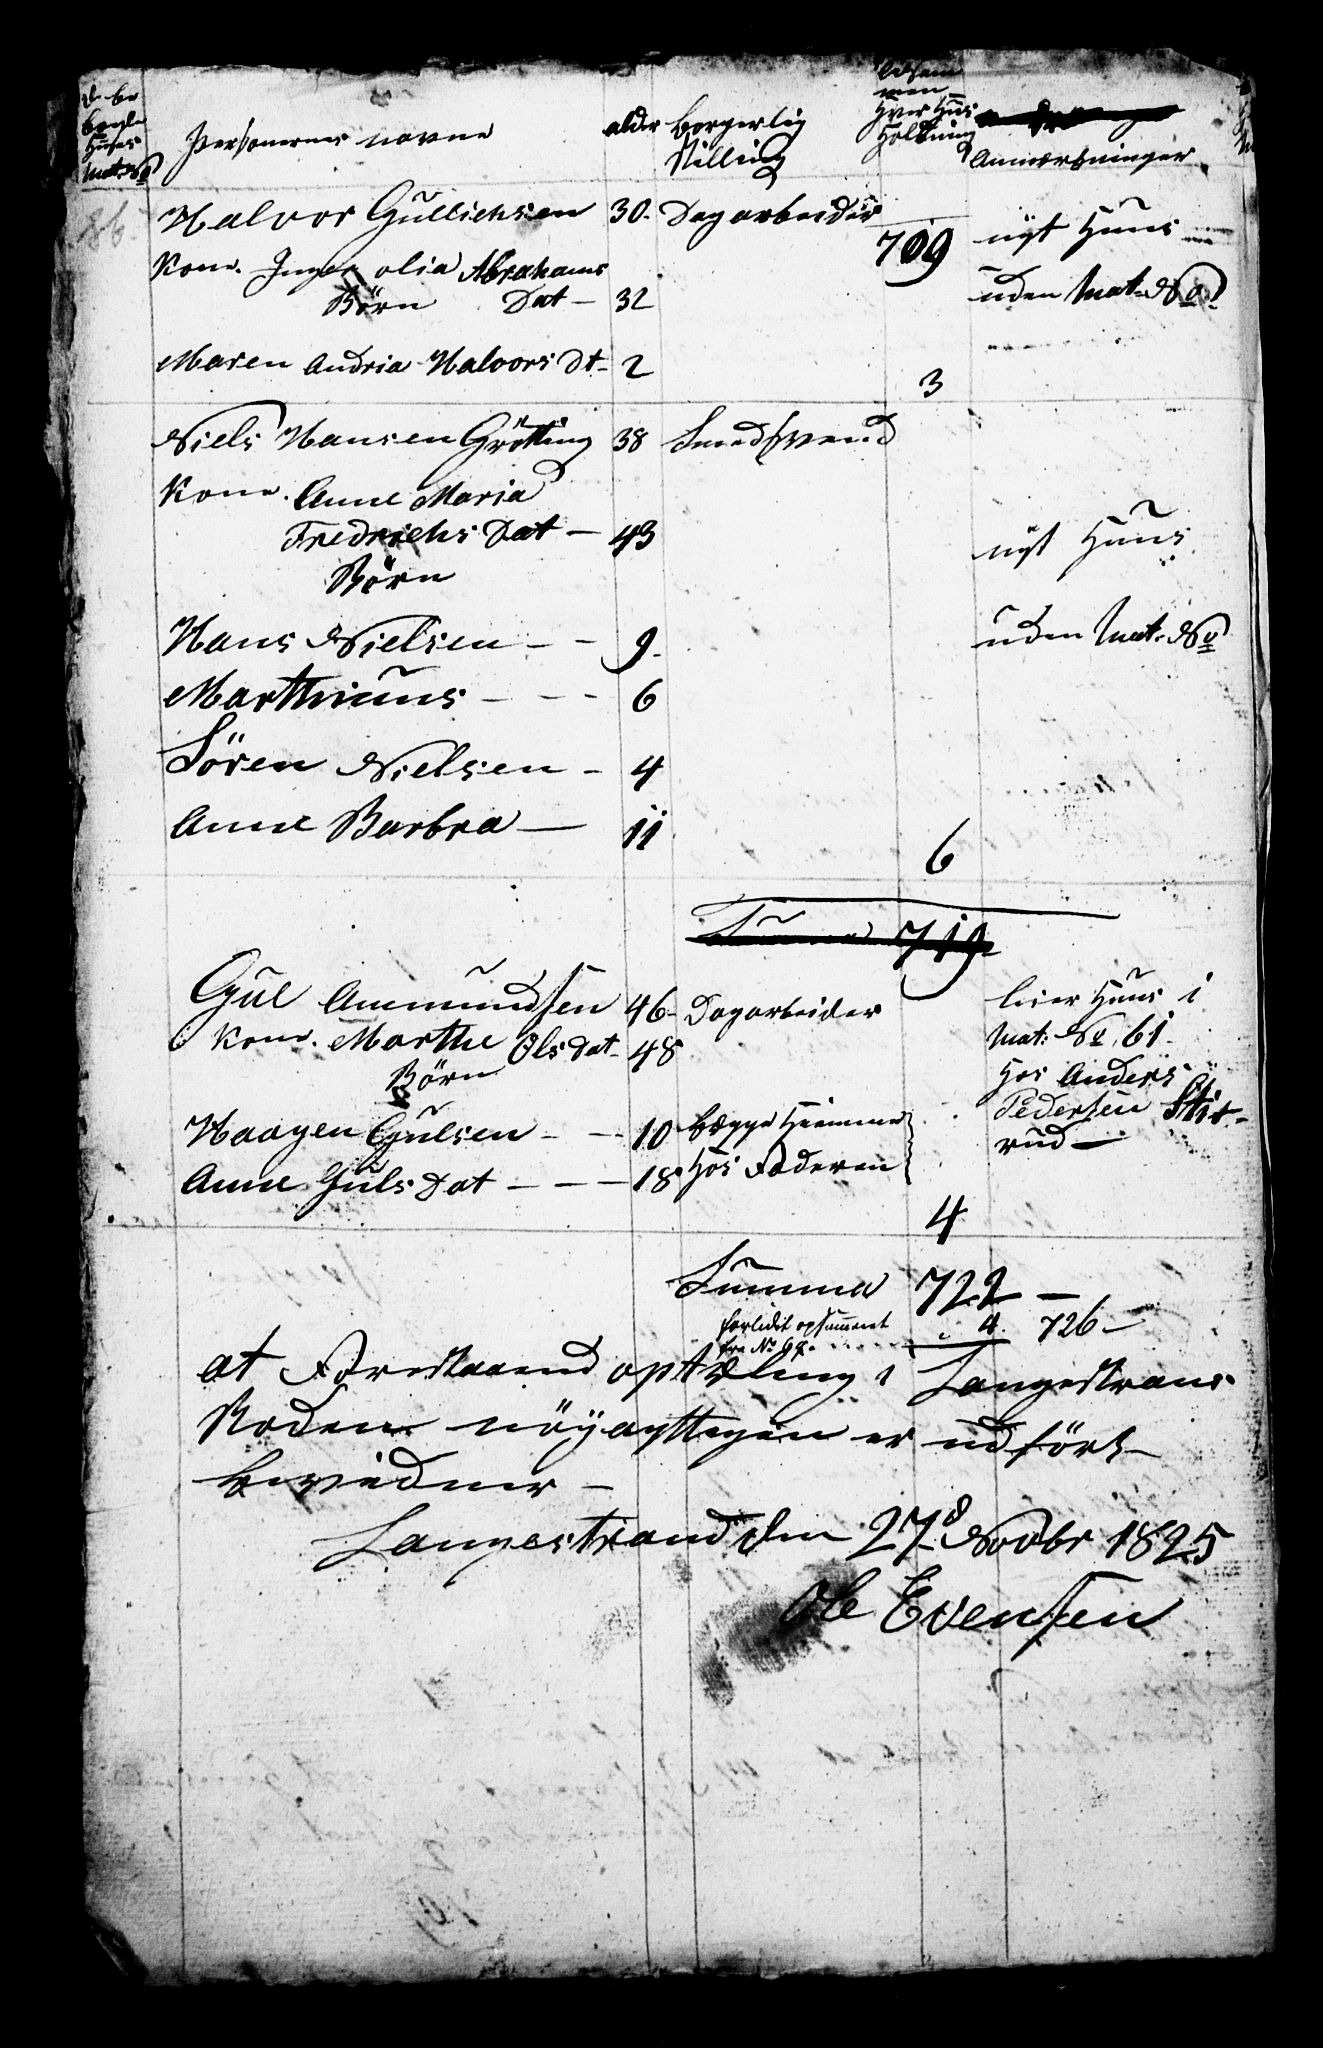 de be
boede
Huses
Mat: No
Personernes navne
alder
borgerlig
Stilling
tilsam
men
Hver Huus
Holdning
Anmærkninger
86.
Halvor Gullichsen 30. Dagarbeider
709
nyt Huus
Kone. Inger olia Abrahams
uden Mat. No
Börn Dat — 32
Maren Andria Halvors Dt - 2
3
Niels Hansen Grötting 38 Smedsvend
Kone. Anne Maria
Fredrichs Dat — 43
nyt Huus
Börn
Hans Nielsen — - 9.
uden Mat. No
Marthinus - - - 6
Sören Nielsen - 4
Anne Barbra — 11
6
Summa 719
Gul Ammundsen 46- Dagarbeider
leier Huus i
Kone. Marthe Olsdat - 48
Mat: No 61.
Börn
hos Anders
Pedersen
rud —
Haagen Gulsen - - - 10 begge Hiemme
Anne Guls Dat - - - 18 Hos Faderen
4
Summa 722 —
forlidt opsummeret 4. 726 —
fra No 67.
at Forestaaend optæling i Langestrans
Roden nöyagttigen er udfört —
bevidner —
Langestrand den 27de Novbr 1825
Ole Evensen